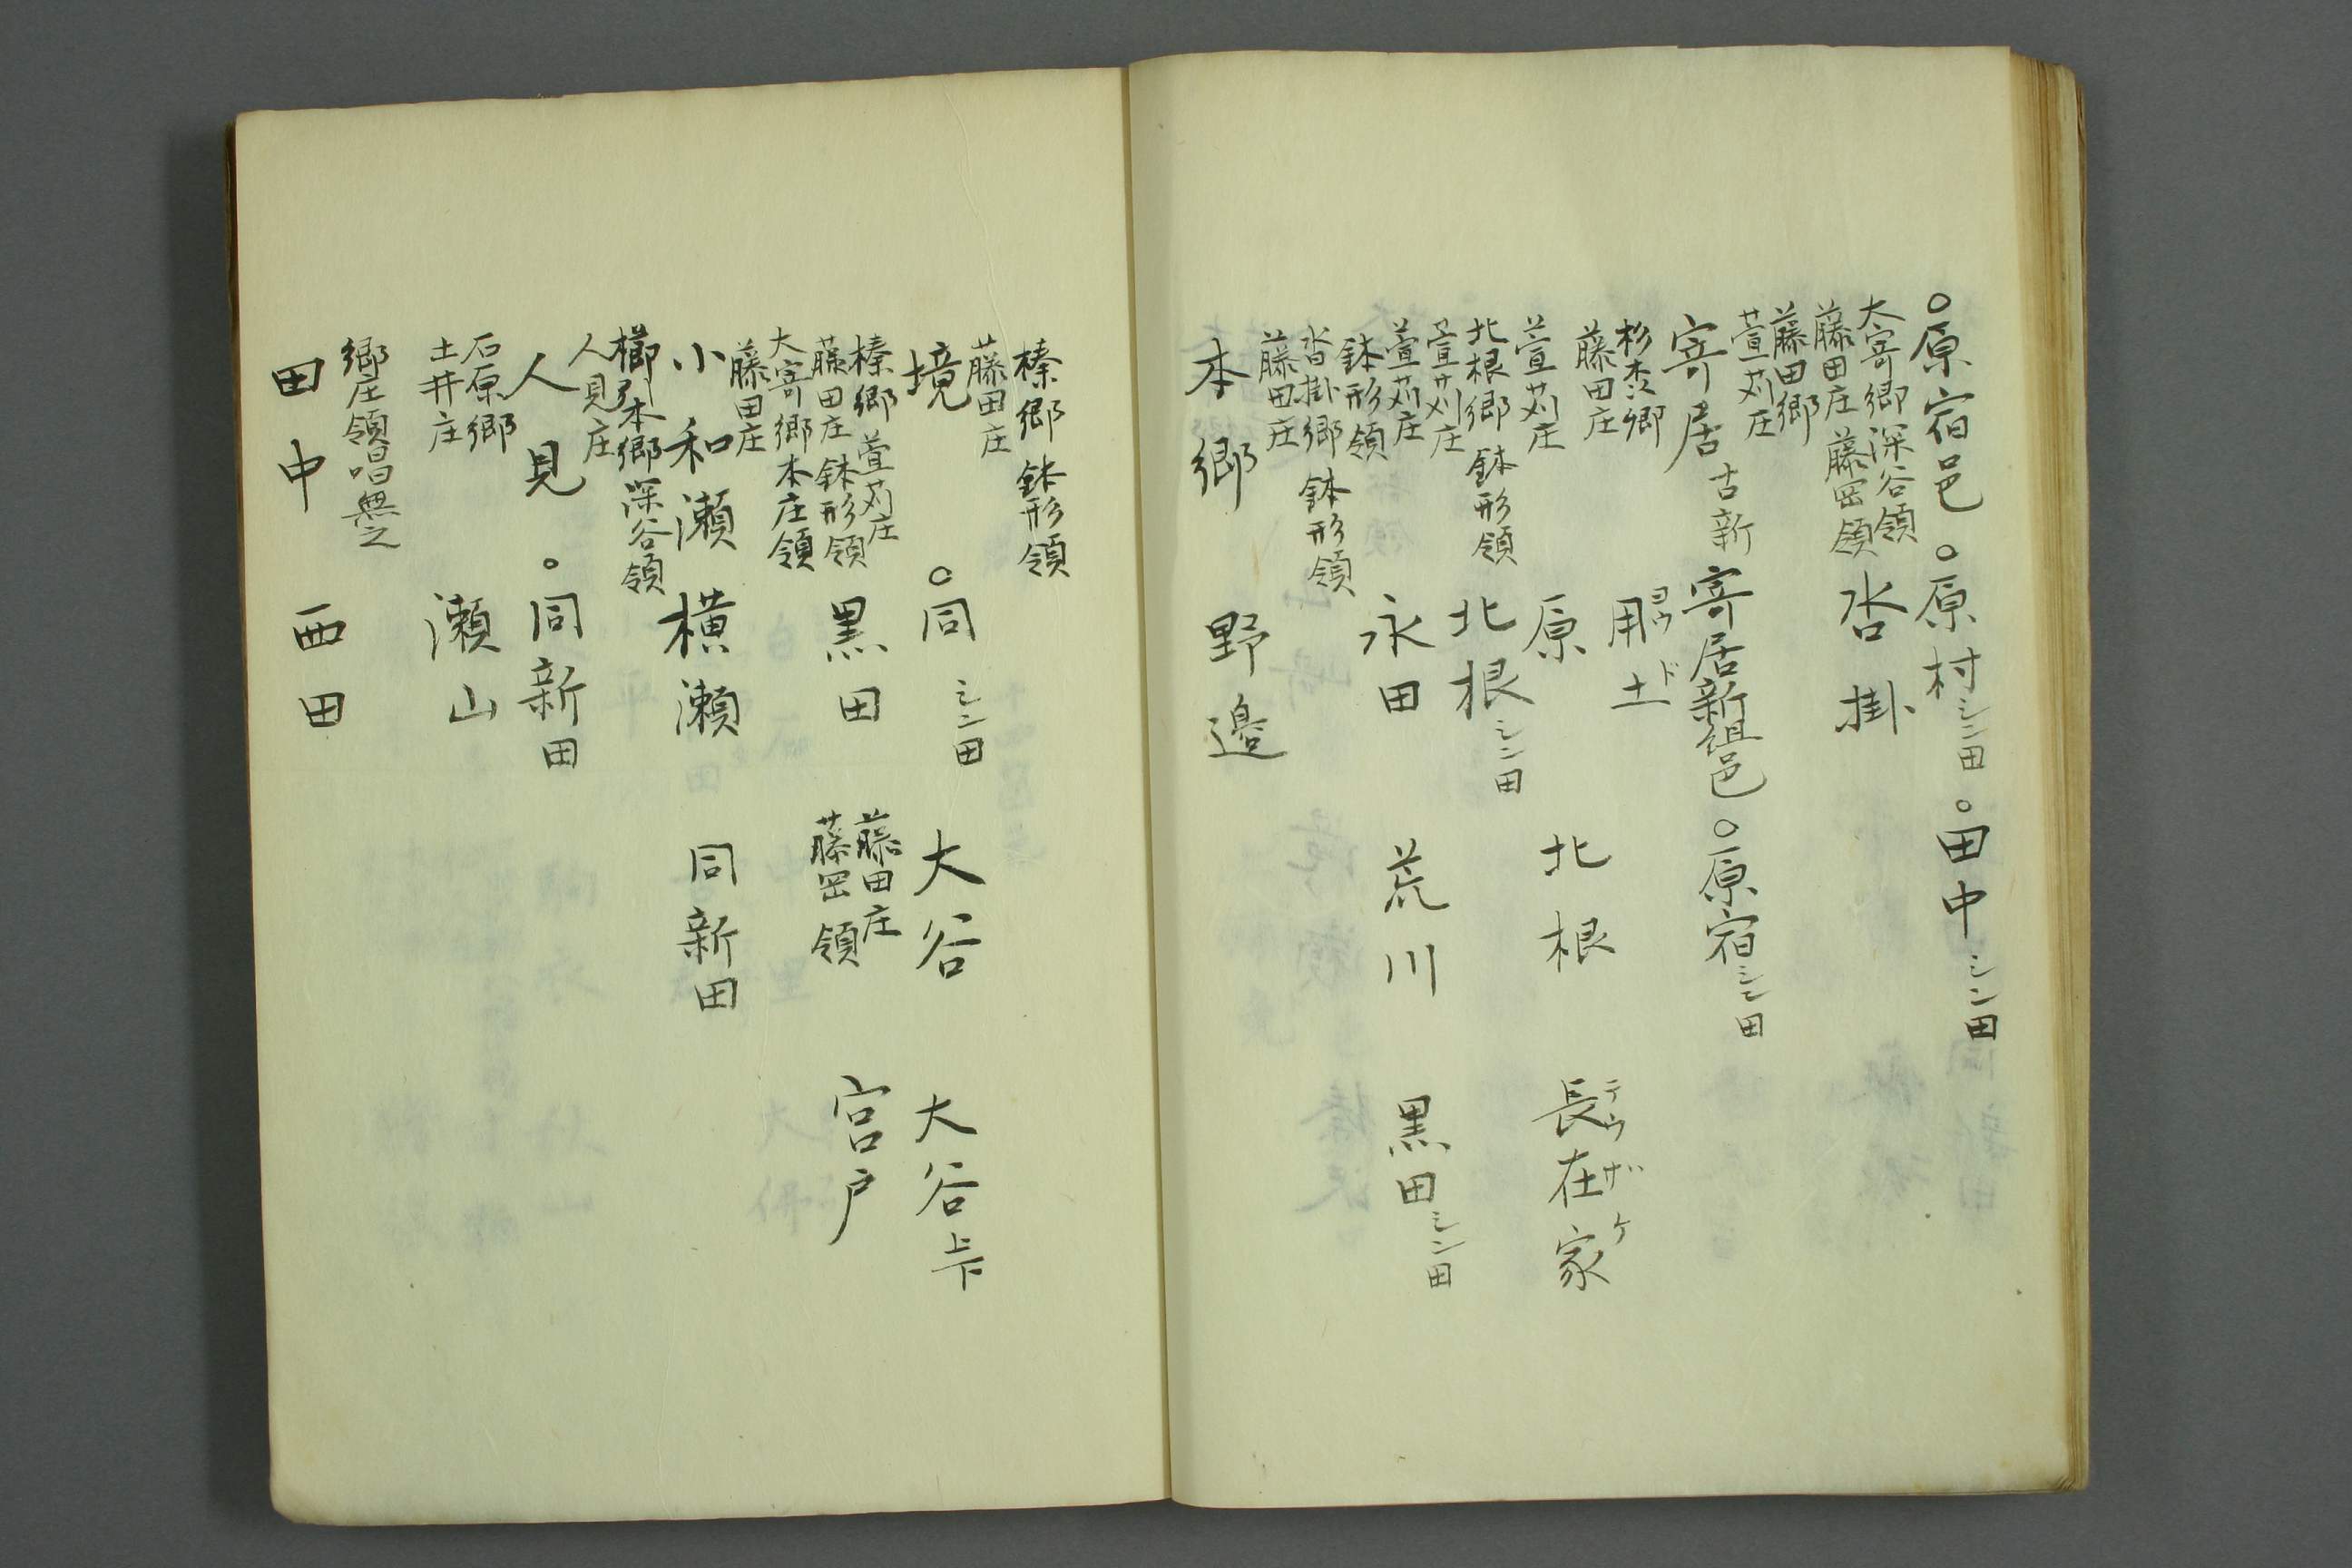 ○原宿邑 ○原村シン田 ○田中シン田
大寄郷深谷領
藤田庄 藤岡領 沓掛
藤田郷
萱苅庄
寄居 古新 寄居新組邑 ○原宿シン田
杉本郷
藤田庄 用土 ヨウド
萱苅庄 原 北根 長在家 テウザケ
北根郷 鉢形領 北根シン田
萱苅庄
萱苅庄
鉢形領 永田 荒川 黒田シン田
沓掛郷 鉢形領
藤田庄
本郷 野邉
榛郷 鉢形領
藤田庄
境 ○同シン田 大谷 大谷上下
榛郷 萱苅庄
藤田庄 鉢形領 黒田 藤田庄 藤岡領 宮戸
大寄郷 本庄領
藤田庄
小和瀬 横瀬 同新田
櫛引本郷 深谷領
人見庄
人見 ○同新田
石原郷
土井庄 瀬山
郷庄領唱無之
田中 西田